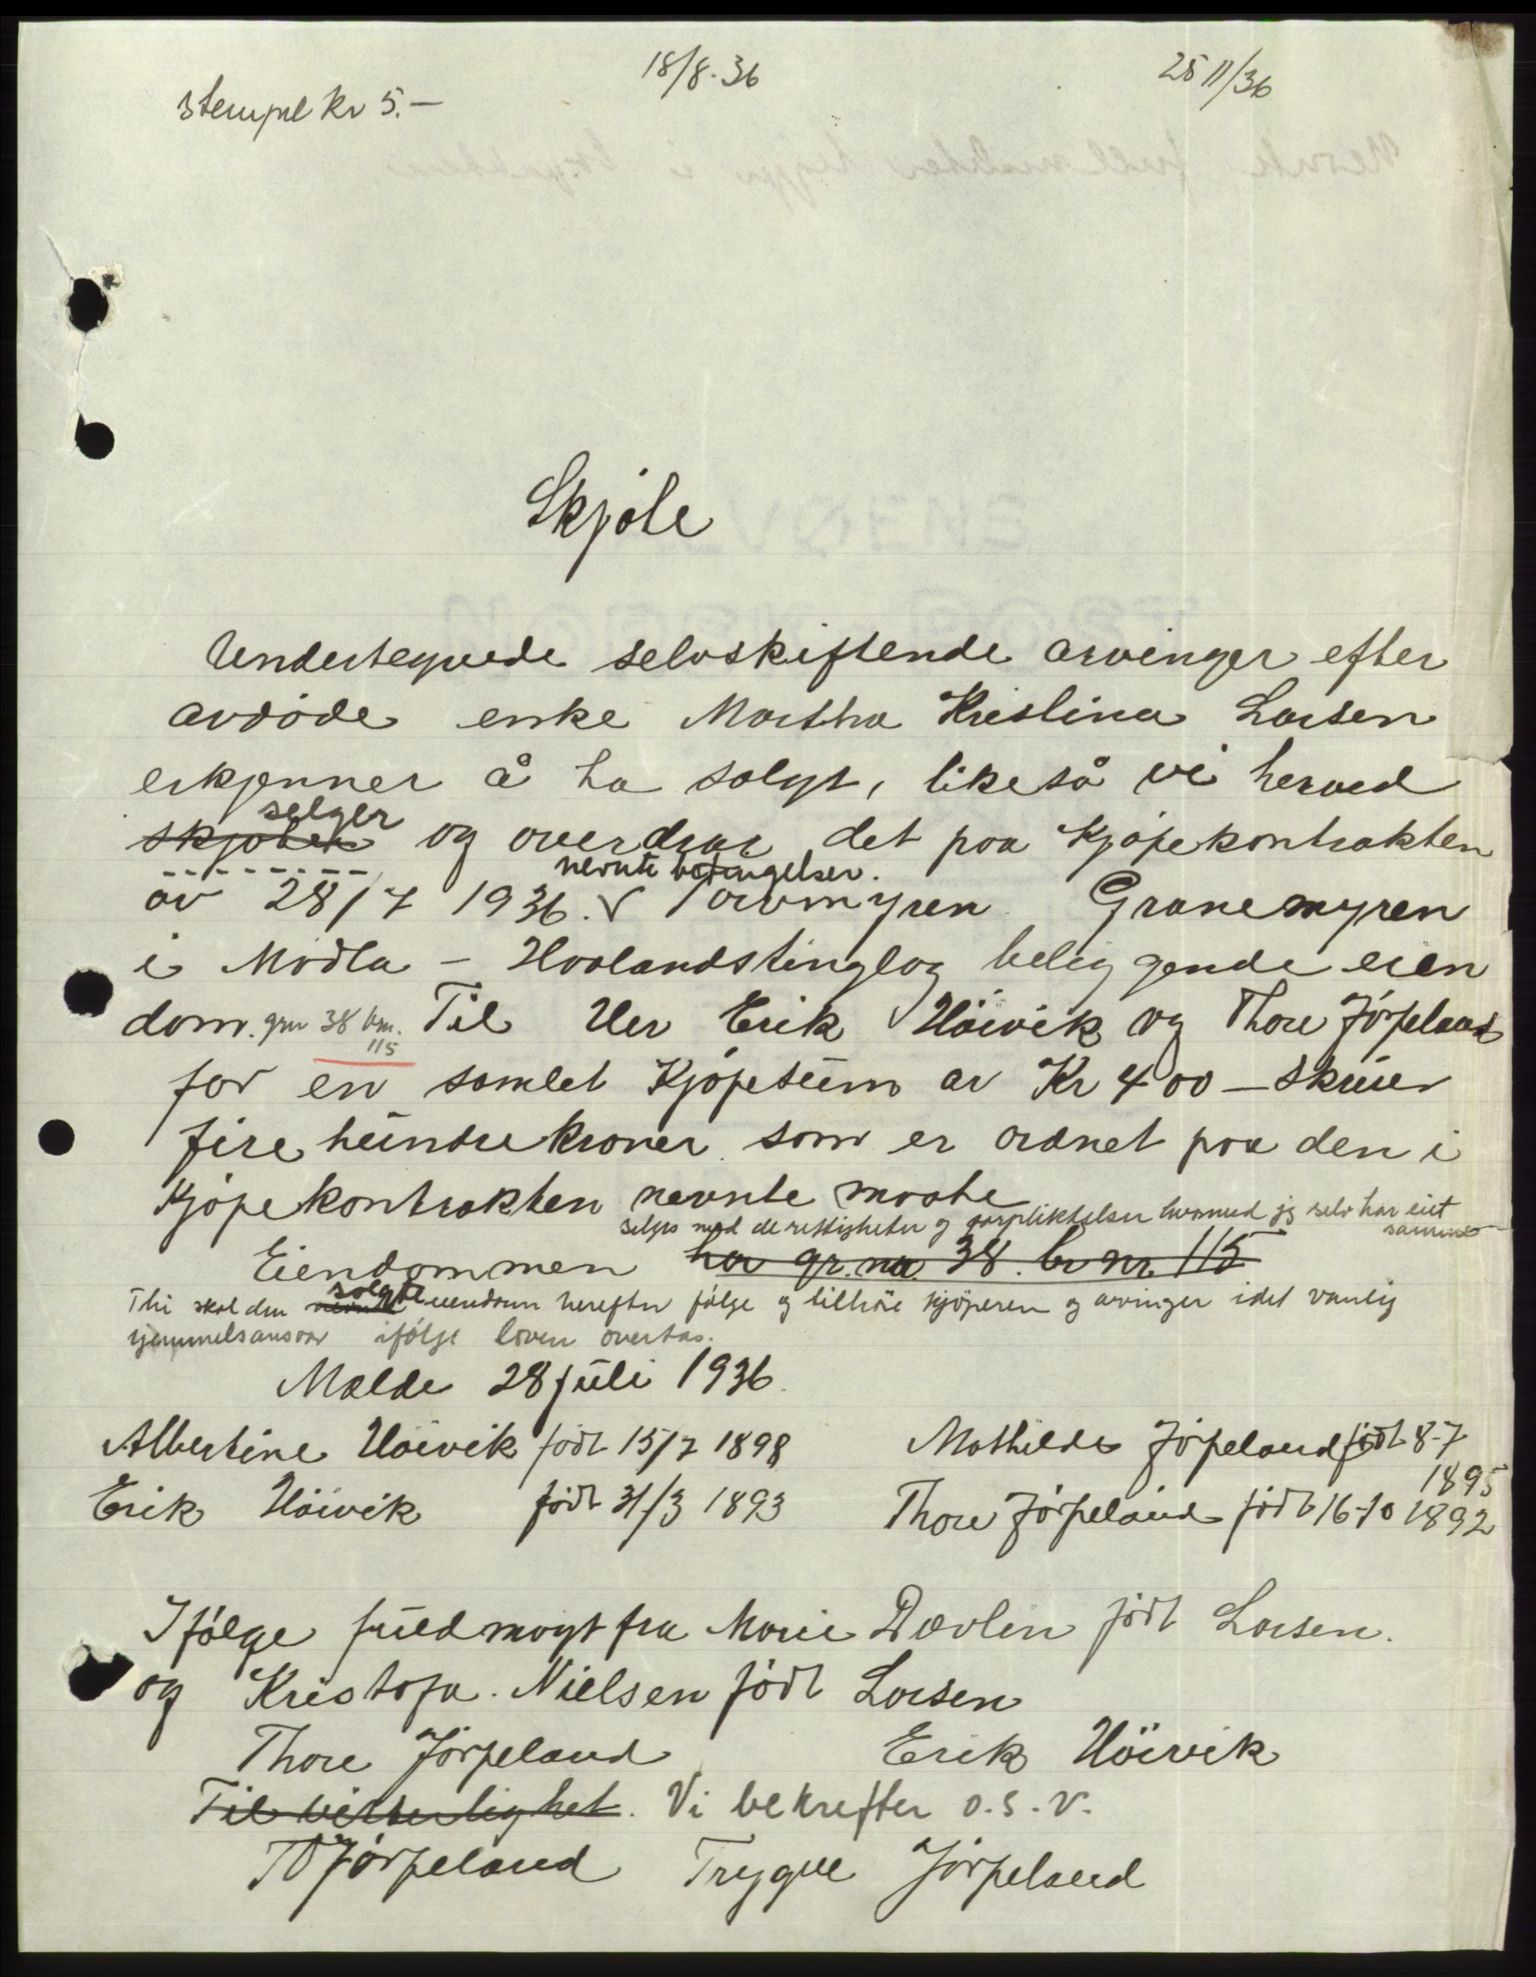 18/8-36
25 11/36
Stempel kr 5.-
Skjöte
Undertegnede selvskiftende arvinger efter
avdöde enke Martha Kristina Larsen
erkjenner å ha solgt, likeså vi herved
selger
skjöter og overdrar det paa Kjöpekontrakten
nevnte betingelser.
av 28/7 1936. v Torvmyren Granemyren
i Madla - Havlandstinglag beliggende eien
dom. gnr 38 bnr. Til Her Erik Höivik og Thore Jörpeland
115
for en samlet Kjöpesum av Kr 400 - skriver
fire hundre kroner som er ordnet paa den i
Kjöpekontrakten nevnte maate
selges med de rettigheter og forpliktelser hvormed jeg selv har eiet
samme
Eiendommen har gr. nr. 38. br nr. 115
solgte
Thi skal den nevnte eiendom herefter fölge og tilhöre kjöperen og arvinger idet vanlig
hjemmelsansvar ifölge loven overtas.
Malde 28 juli 1936.
Albertine Höivik födt 15/7 1898
Mathilde Jörpeland födt 8-7
1895
Erik Höivik födt 31/3 1893
Thore Jörpeland födt 16-10 1892
Ifölge fuldmagt fra Marie Davlin födt Larsen.
og Kristofa. Nielsen födt Larsen
Thore Jörpeland Erik Höivik
Til vitterlighet. Vi bekrefter o.s.v.
TO Jörpeland Trygve Jörpeland